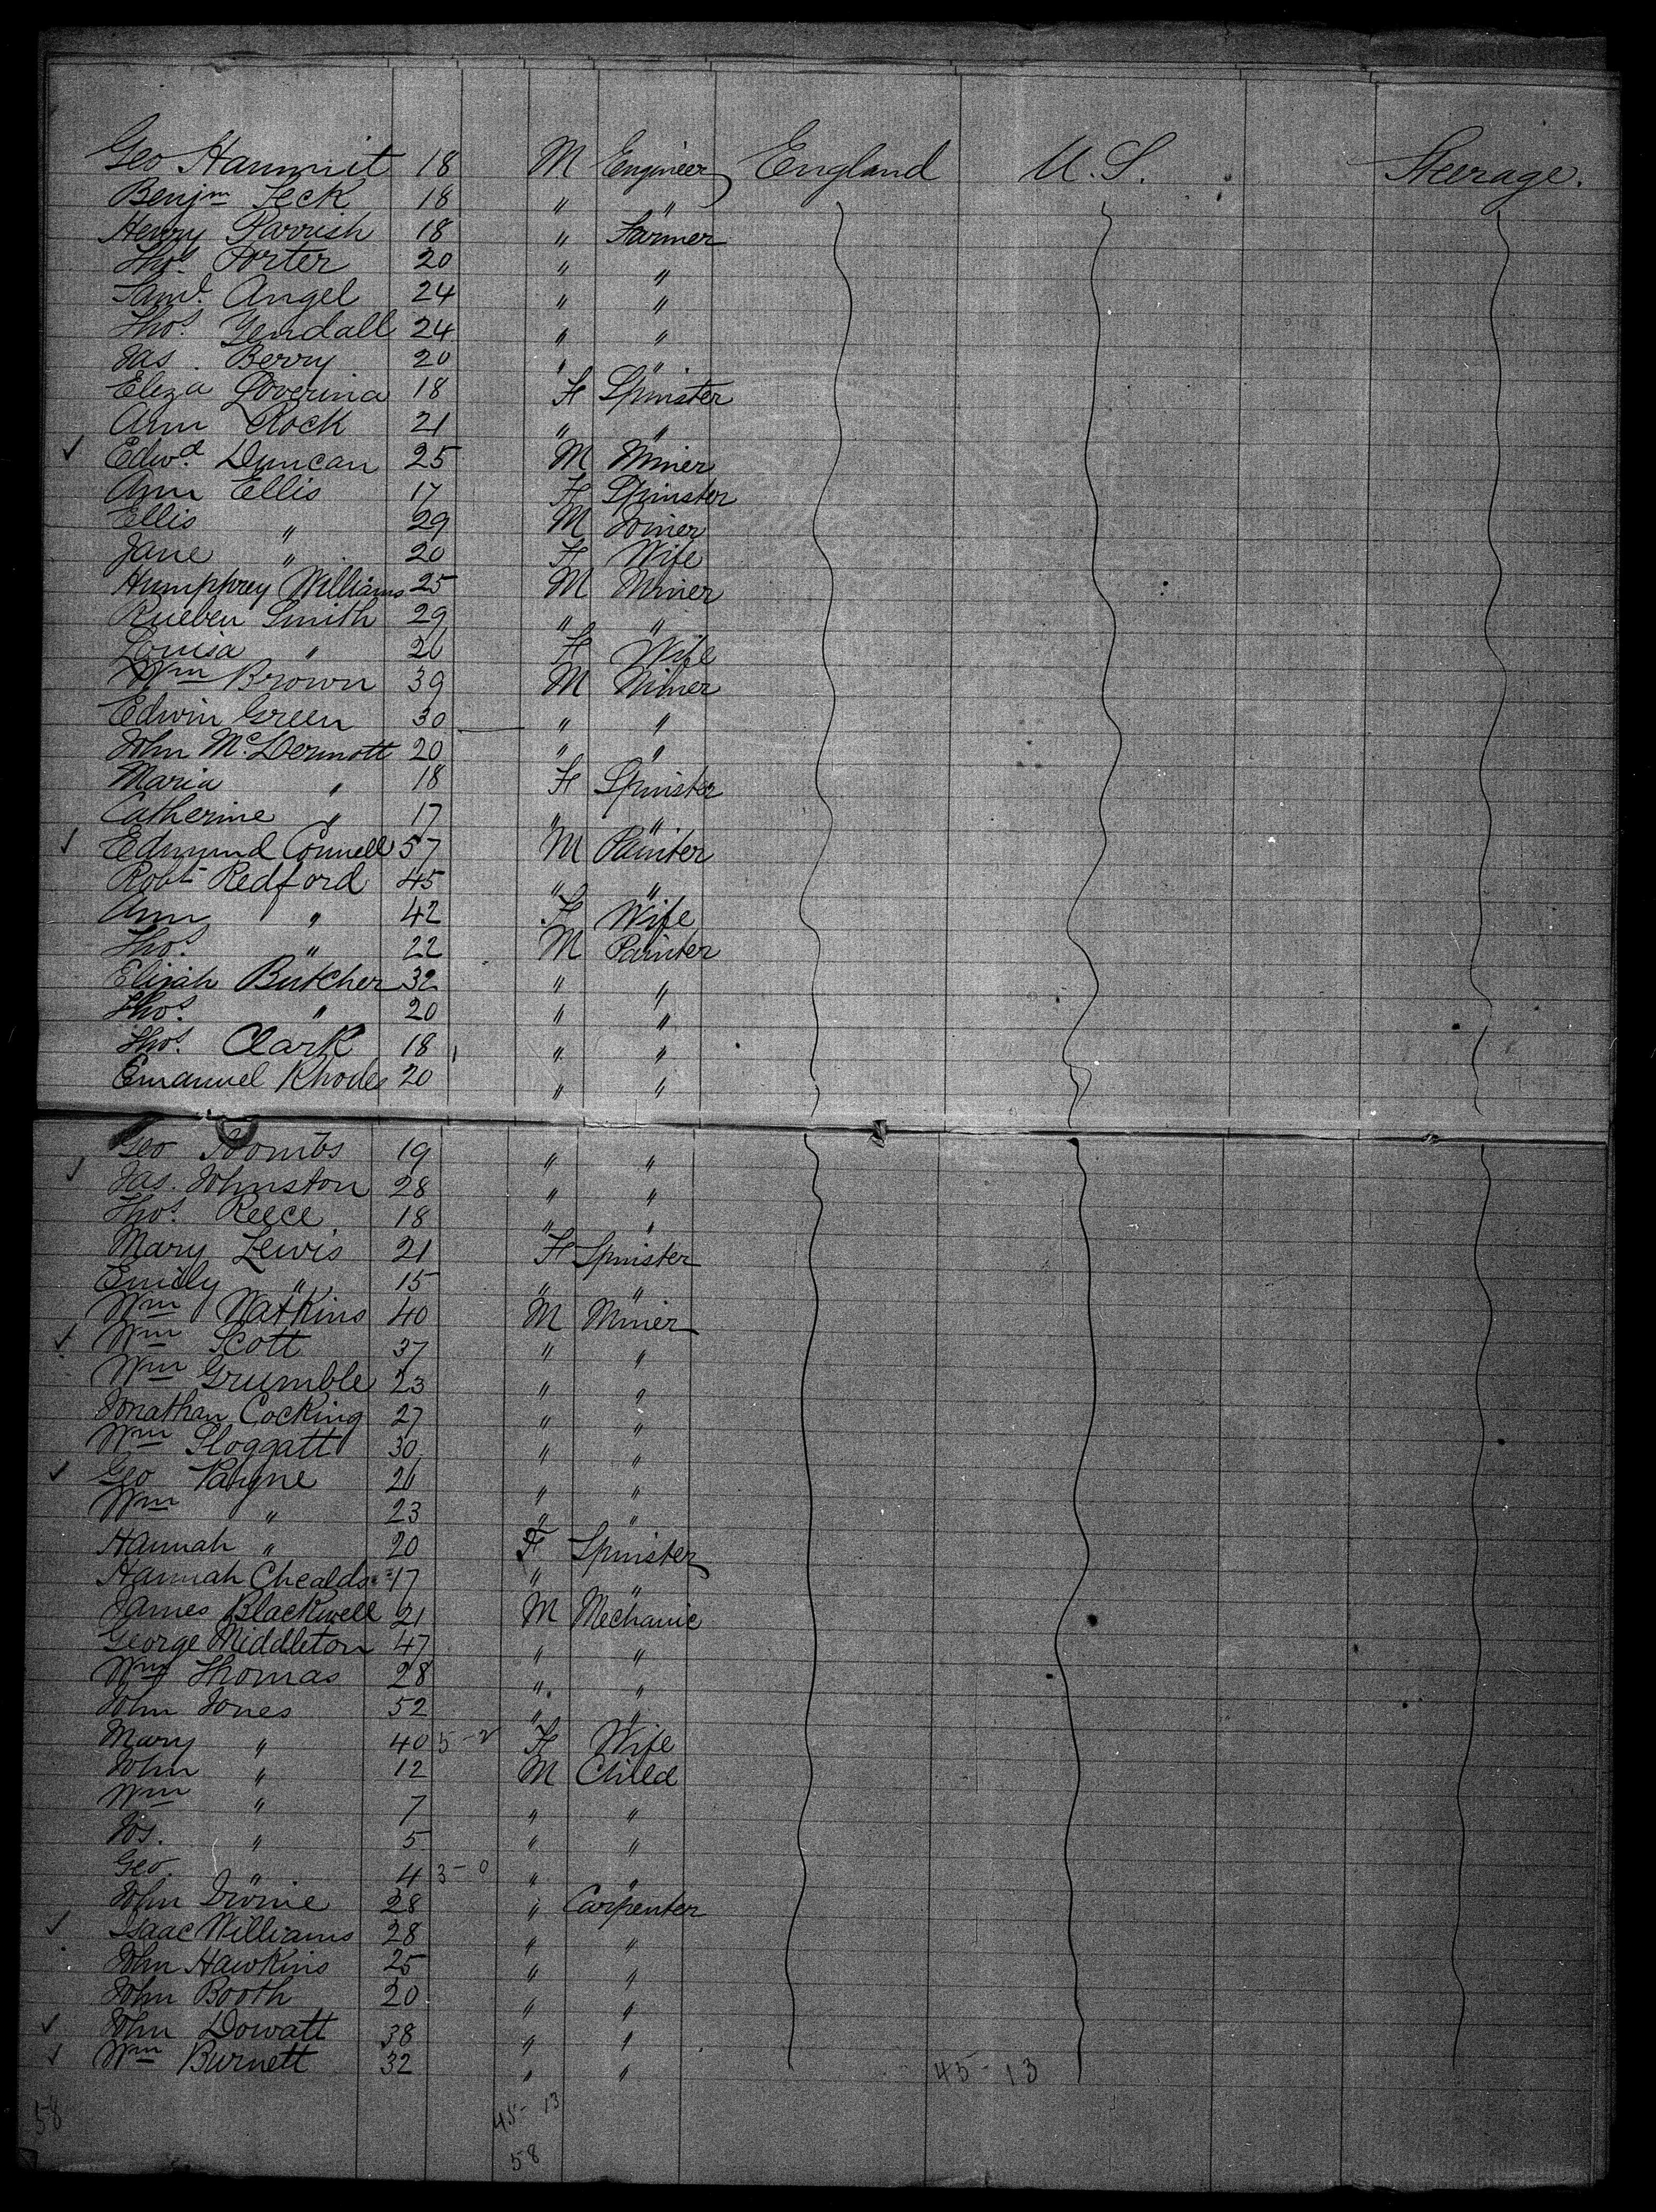 Geo Hammit 18 M Engineer England U.S. Steerage.
Benjm Leck 18 " "
Henry Parrish 18 " Farmer
Thos. Porter 20 " "
Saml. Angel 24 " "
Thos. Yendall 24 " "
Jas. Berry 20 " "
Eliza Loverina 18 F Spinster
Ann Rock 21 " "
✓ Edwd. Duncan 25 M Miner
Ann Ellis 17 F Spinster
Ellis " 29 M Joiner
Jane " 20 F Wife
Humphrey Williams 25 M Miner
Rueben Smith 29 " "
Louisa " 26 F Wife
Wm Brown 39 M Miner
Edwin Green 30 " "
John McDermott 20 " "
Maria " 18 F Spinster
Catherine " 17 " "
✓ Edmund Connell 57 M Painter
Robt Redford 45 " "
Ann " 42 F Wife
Thos. " 22 M Painter
Elijah Butcher 32 " "
Thos. " 20 " "
Thos. Clark 18 " "
Emanuel Rhodes 20 " "
Geo Toombs 19 " "
✓ Jas. Johnston 28 " "
Thos. Reece 18 " "
Mary Lewis 21 F Spinster
Emily " 15 " "
Wm Watkins 40 M Miner
✓ Wm Scott 37 " "
Wm Grumble 23 " "
Jonathan Cocking 27 " "
Wm Sloggatt 30 " "
✓ Geo Payne 26 " "
Wm " 23 " "
Hannah " 20 F Spinster
Hannah Chealds 17 " "
James Blackwell 21 M Mechanic
George Middleton 47 " "
Wm Thomas 28 " "
John Jones 52 " "
Mary " 40 5-2 F Wife
John " 12 M Child
Wm " 7 " "
Jos. " 5 " "
Geo. " 4 3-0 " "
John Irvine 28 " Carpenter
✓ Isaac Williams 28 " "
John Hawkins 25 " "
John Booth 20 " "
✓ John Dowatt 38 " "
✓ Wm Burnett 32 " "
45-13
58 45-13
58